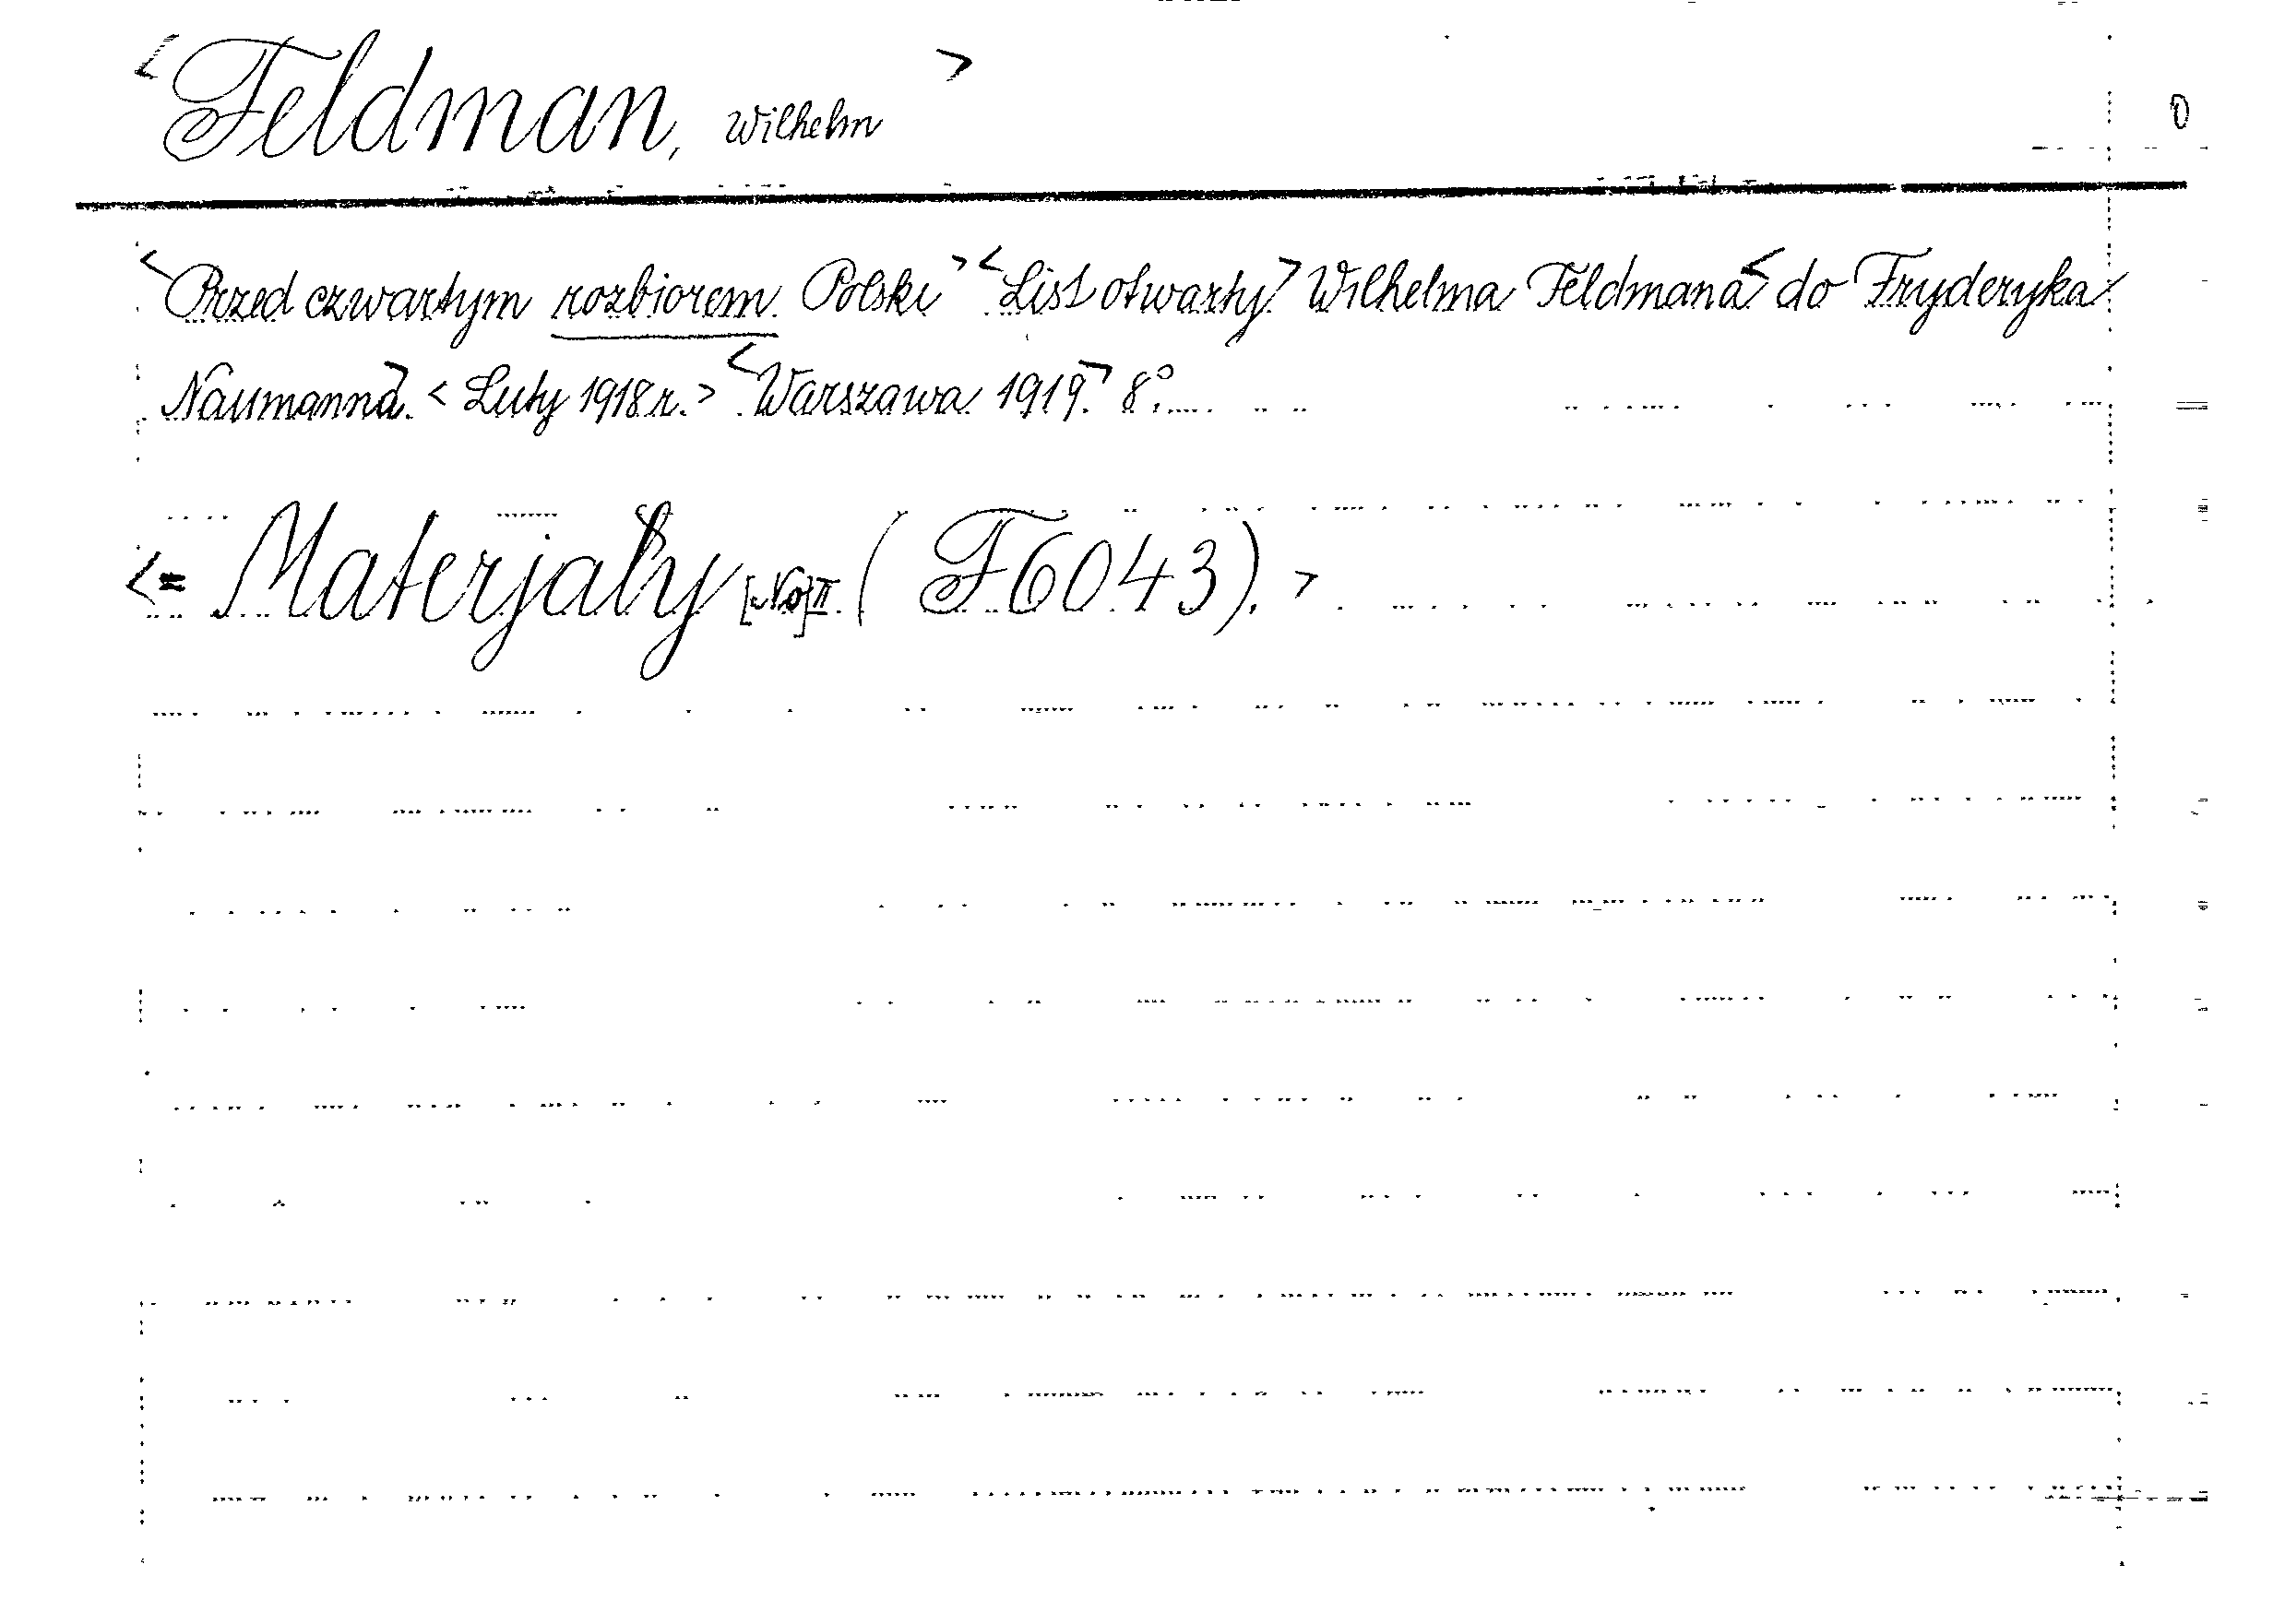 <Feldman, Wilhelm> 0
<Przed czwartym rozbiorem Polski> <List otwarty> Wilhelma Feldmana < do Fryderyka
Naumanna>. <Luty 1918 r.> <Warszawa 1919.> 8°.
<= Materjały [No] II (F6043). >